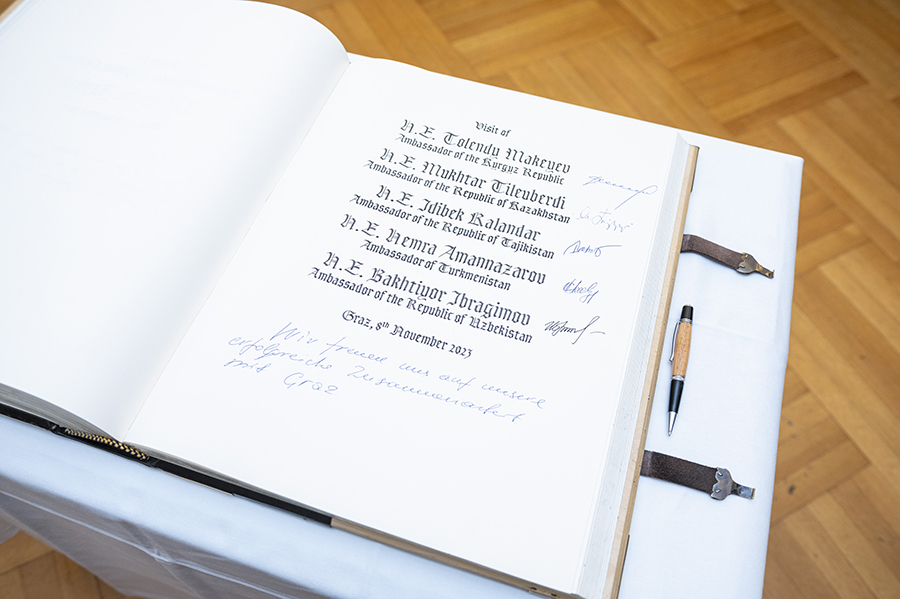 Visit of
H. E. Tolendy Makeyev
Ambassador of the Kyrgyz Republic
H. E. Mukhtar Tileuberdi
Ambassador of the Republic of Kazakhstan
H. E. Idibek Kalandar
Ambassador of the Republic of Tajikistan
H. E. Nemra Amannazarov
Ambassador of Turkmenistan
H. E. Bakhtiyor Ibragimov
Ambassador of the Republic of Uzbekistan
Graz, 8th November 2023
Wir freuen uns auf unsere
erfolgreiche Zusammenarbeit
mit Graz